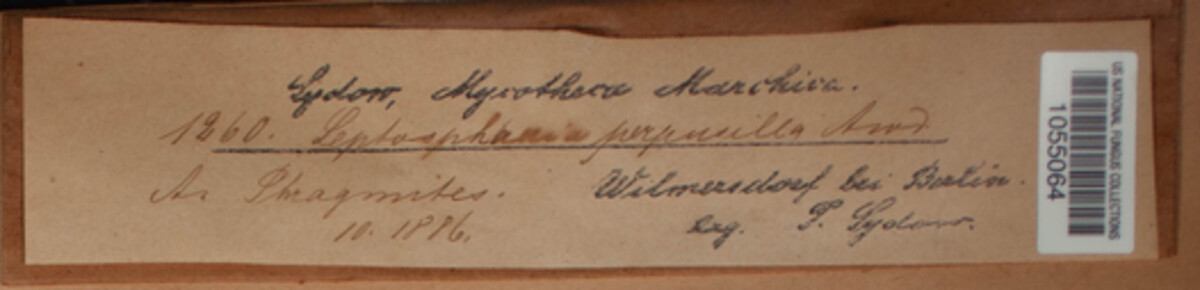 Sydow, Mycotheca Marchica.
1260. Leptosphaeria perpusilla Awd
An Phragmites.
10. 1886.
Wilmersdorf bei Berlin.
leg. P. Sydow.
US NATIONAL FUNGUS COLLECTIONS
1055064